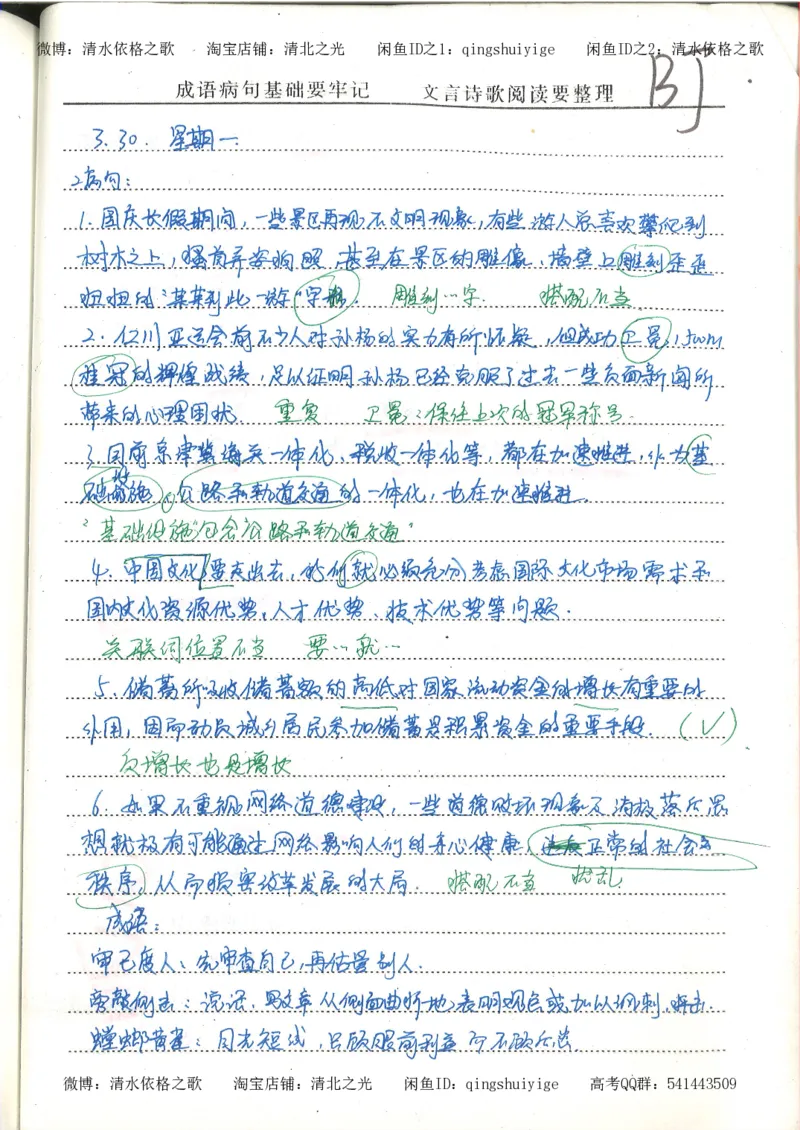 微博：清水依格之歌 淘宝店铺：清北之光 闲鱼ID之1：qingshuiyige 闲鱼ID之2：清水依格之歌
成语病句基础要牢记 文言诗歌阅读要整理 BJ
3.30. 星期一
病句：
1. 国庆长假期间，一些景区再现不文明现象，有些游人总喜欢攀爬到
树木之上，搔首弄姿拍照，甚至在景区的雕像、墙壁上雕刻歪歪
扭扭的“某某到此一游”字 雕刻…字 搭配不当
2. 仁川亚运会前不少人对孙杨的实力有所怀疑，但成功卫冕1500m
桂冠的辉煌战绩，足以证明孙杨已经克服了过去一些负面新闻所
带来的心理困扰. 重复 卫冕：保住上次的冠军称号.
3. 目前京津冀海关一体化、税收一体化等，都在加速推进，作为基
础设施、公路和轨道交通的一体化，也在加速推进.
“基础设施”包含“公路和轨道交通”
4. 中国文化要走出去，我们就必须充分考虑国际文化市场需求和
国内文化资源优势，人才优势、技术优势等问题.
关联词位置不当 要…就…
5. 储蓄所吸收储蓄额的高低对国家流动资金的增长有重要的
作用，因而动员城乡居民参加储蓄是积累资金的重要手段. (√)
负增长也是增长
6. 如果不重视网络道德建设，一些道德破坏现象及消极落后思
想就极有可能通过网络影响人们的身心健康，正常的社会
秩序，从而损害改革发展的大局. 搭配不当 扰乱
成语：
审己度人：先审查自己，再估量别人.
旁敲侧击：说话、写文章从侧面曲折地表明观点或加以讽刺、抨击.
螳螂黄雀：目光短浅，只顾眼前利益而不顾后患.
微博：清水依格之歌 淘宝店铺：清北之光 闲鱼ID：qingshuiyige 高考QQ群：541443509